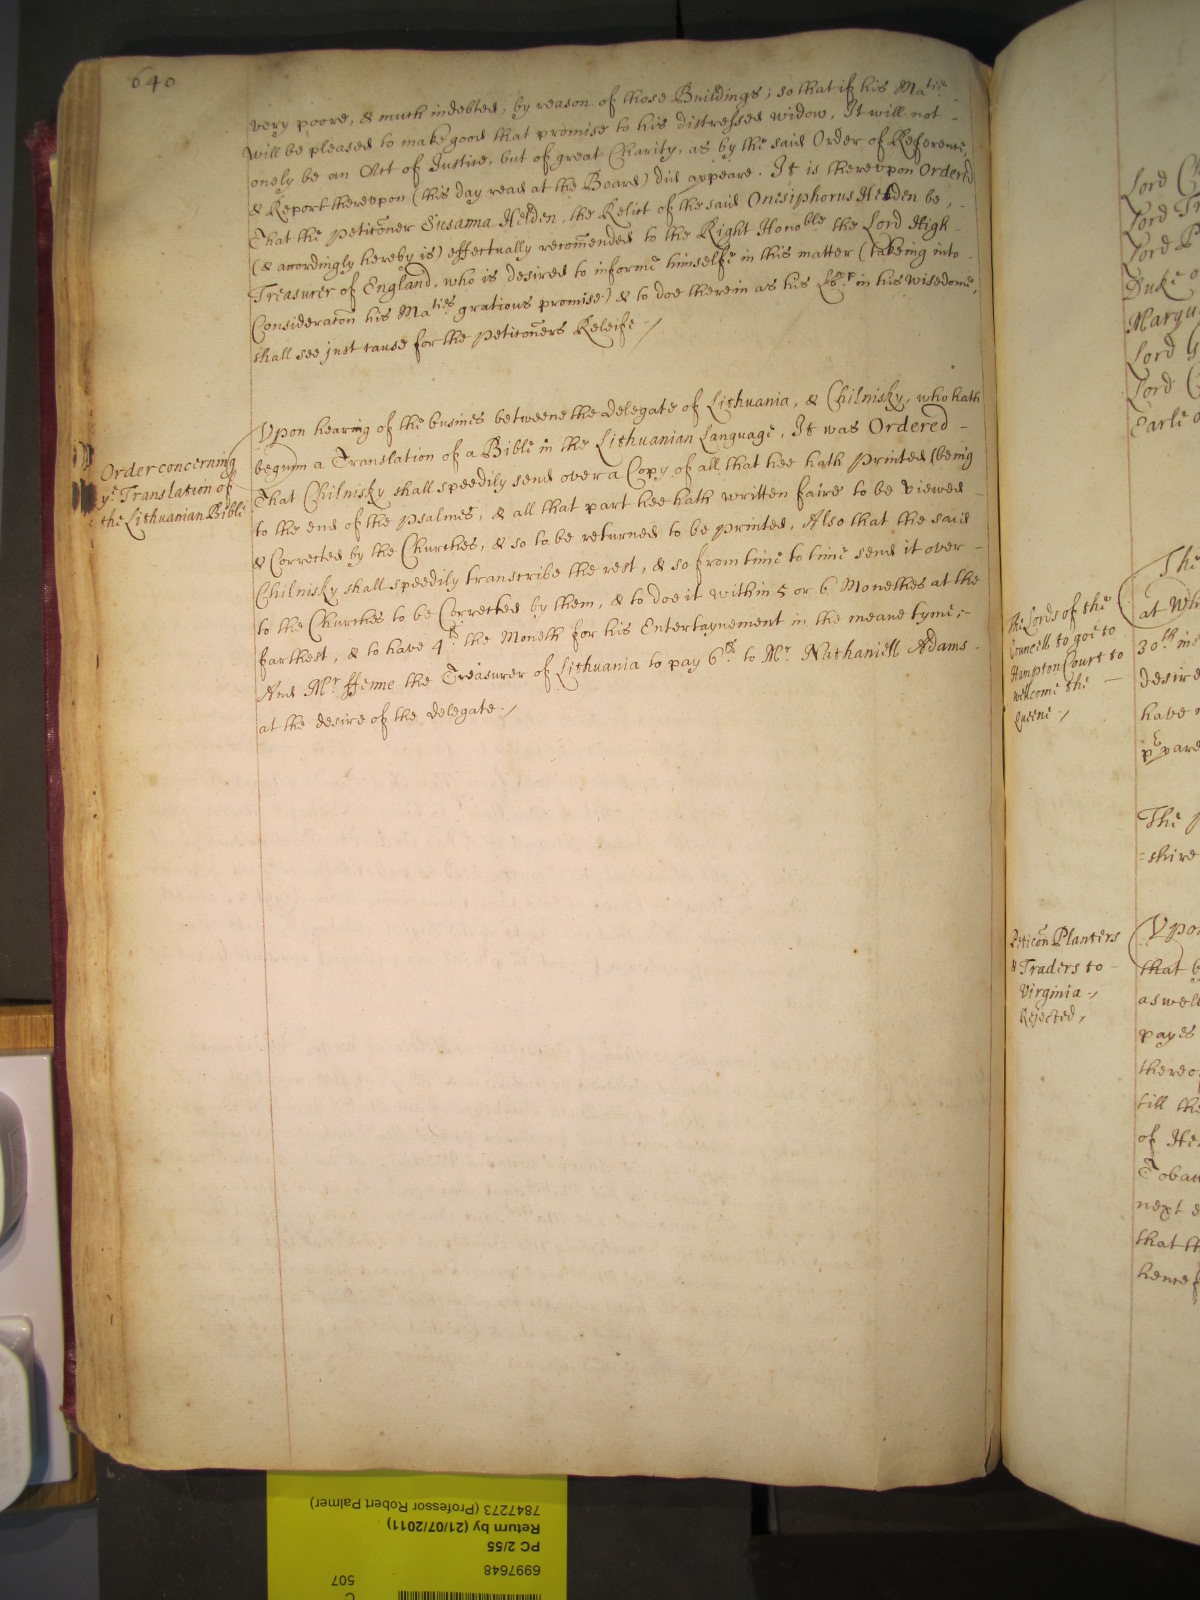 640
very poore, & much indebted, by reason of those Buildings; so that if his Ma^tie
will be pleased to make good that promise to his distressed widow, It will not -
onely be an Act of Justice, but of great Charity, as by the said Order of Reference,
& Report thereupon (this day read at the Board) did appeare. It is thereupon Ordered
That the Peticõner Susanna Helden, the Relict of the said Onesiphorus Helden be, -
(& accordingly hereby is) effectually recom̃ended to the Right Hono^ble the Lord High -
Treasurer of England, who is desired to informe himselfe in this matter (takeing into -
Consideracõn his Ma^ties gratious promise) & to doe therein as his Lo^pp in his wisedome,
shall see just cause for the Peticõners Releife ./
Order concerning
y^e Translation of
the Lithuanian Bible
Upon hearing of the busines betweene the delegate of Lithuania, & Chilnisky, who hath
begunn a Translation of a Bible in the Lithuanian Language, It was Ordered -
That Chilnisky shall speedily send over a Copy of all that hee hath Printed (being
to the end of the Psalmes, & all that part hee hath written faire to be viewed -
& Corrected by the Churches, & so to be returned to be printed, Also that the said
Chilnisky shall speedily transcribe the rest, & so from time to time send it over -
to the Churches to be Corrected by them, & to doe it within 5 or 6 Monethes at the
farthest, & to have 4^li the Moneth for his Entertaynement in the meane tyme; -
And M^r Henne the Treasurer of Lithuania to pay 6^li to M^r Nathaniell Adams -
at the desire of the delegate ./
Lord
Lord
Lord
Duke
Lord
Lord
Earle
The Lords of the
Councell to goe to
Hampton Court to
welcome the -
Queene ./
The
at Wh
30^th in
desire
have
The
=shire
Peticõn Planters
& Traders to -
Virginia ./
Rejected,
Upon
that
as well
payes
thereo
till the
of He
next
that th
hencef
7847273 (Professor Robert Palmer)
Return by (21/07/2011)
PC 2/55
6997648
507
C